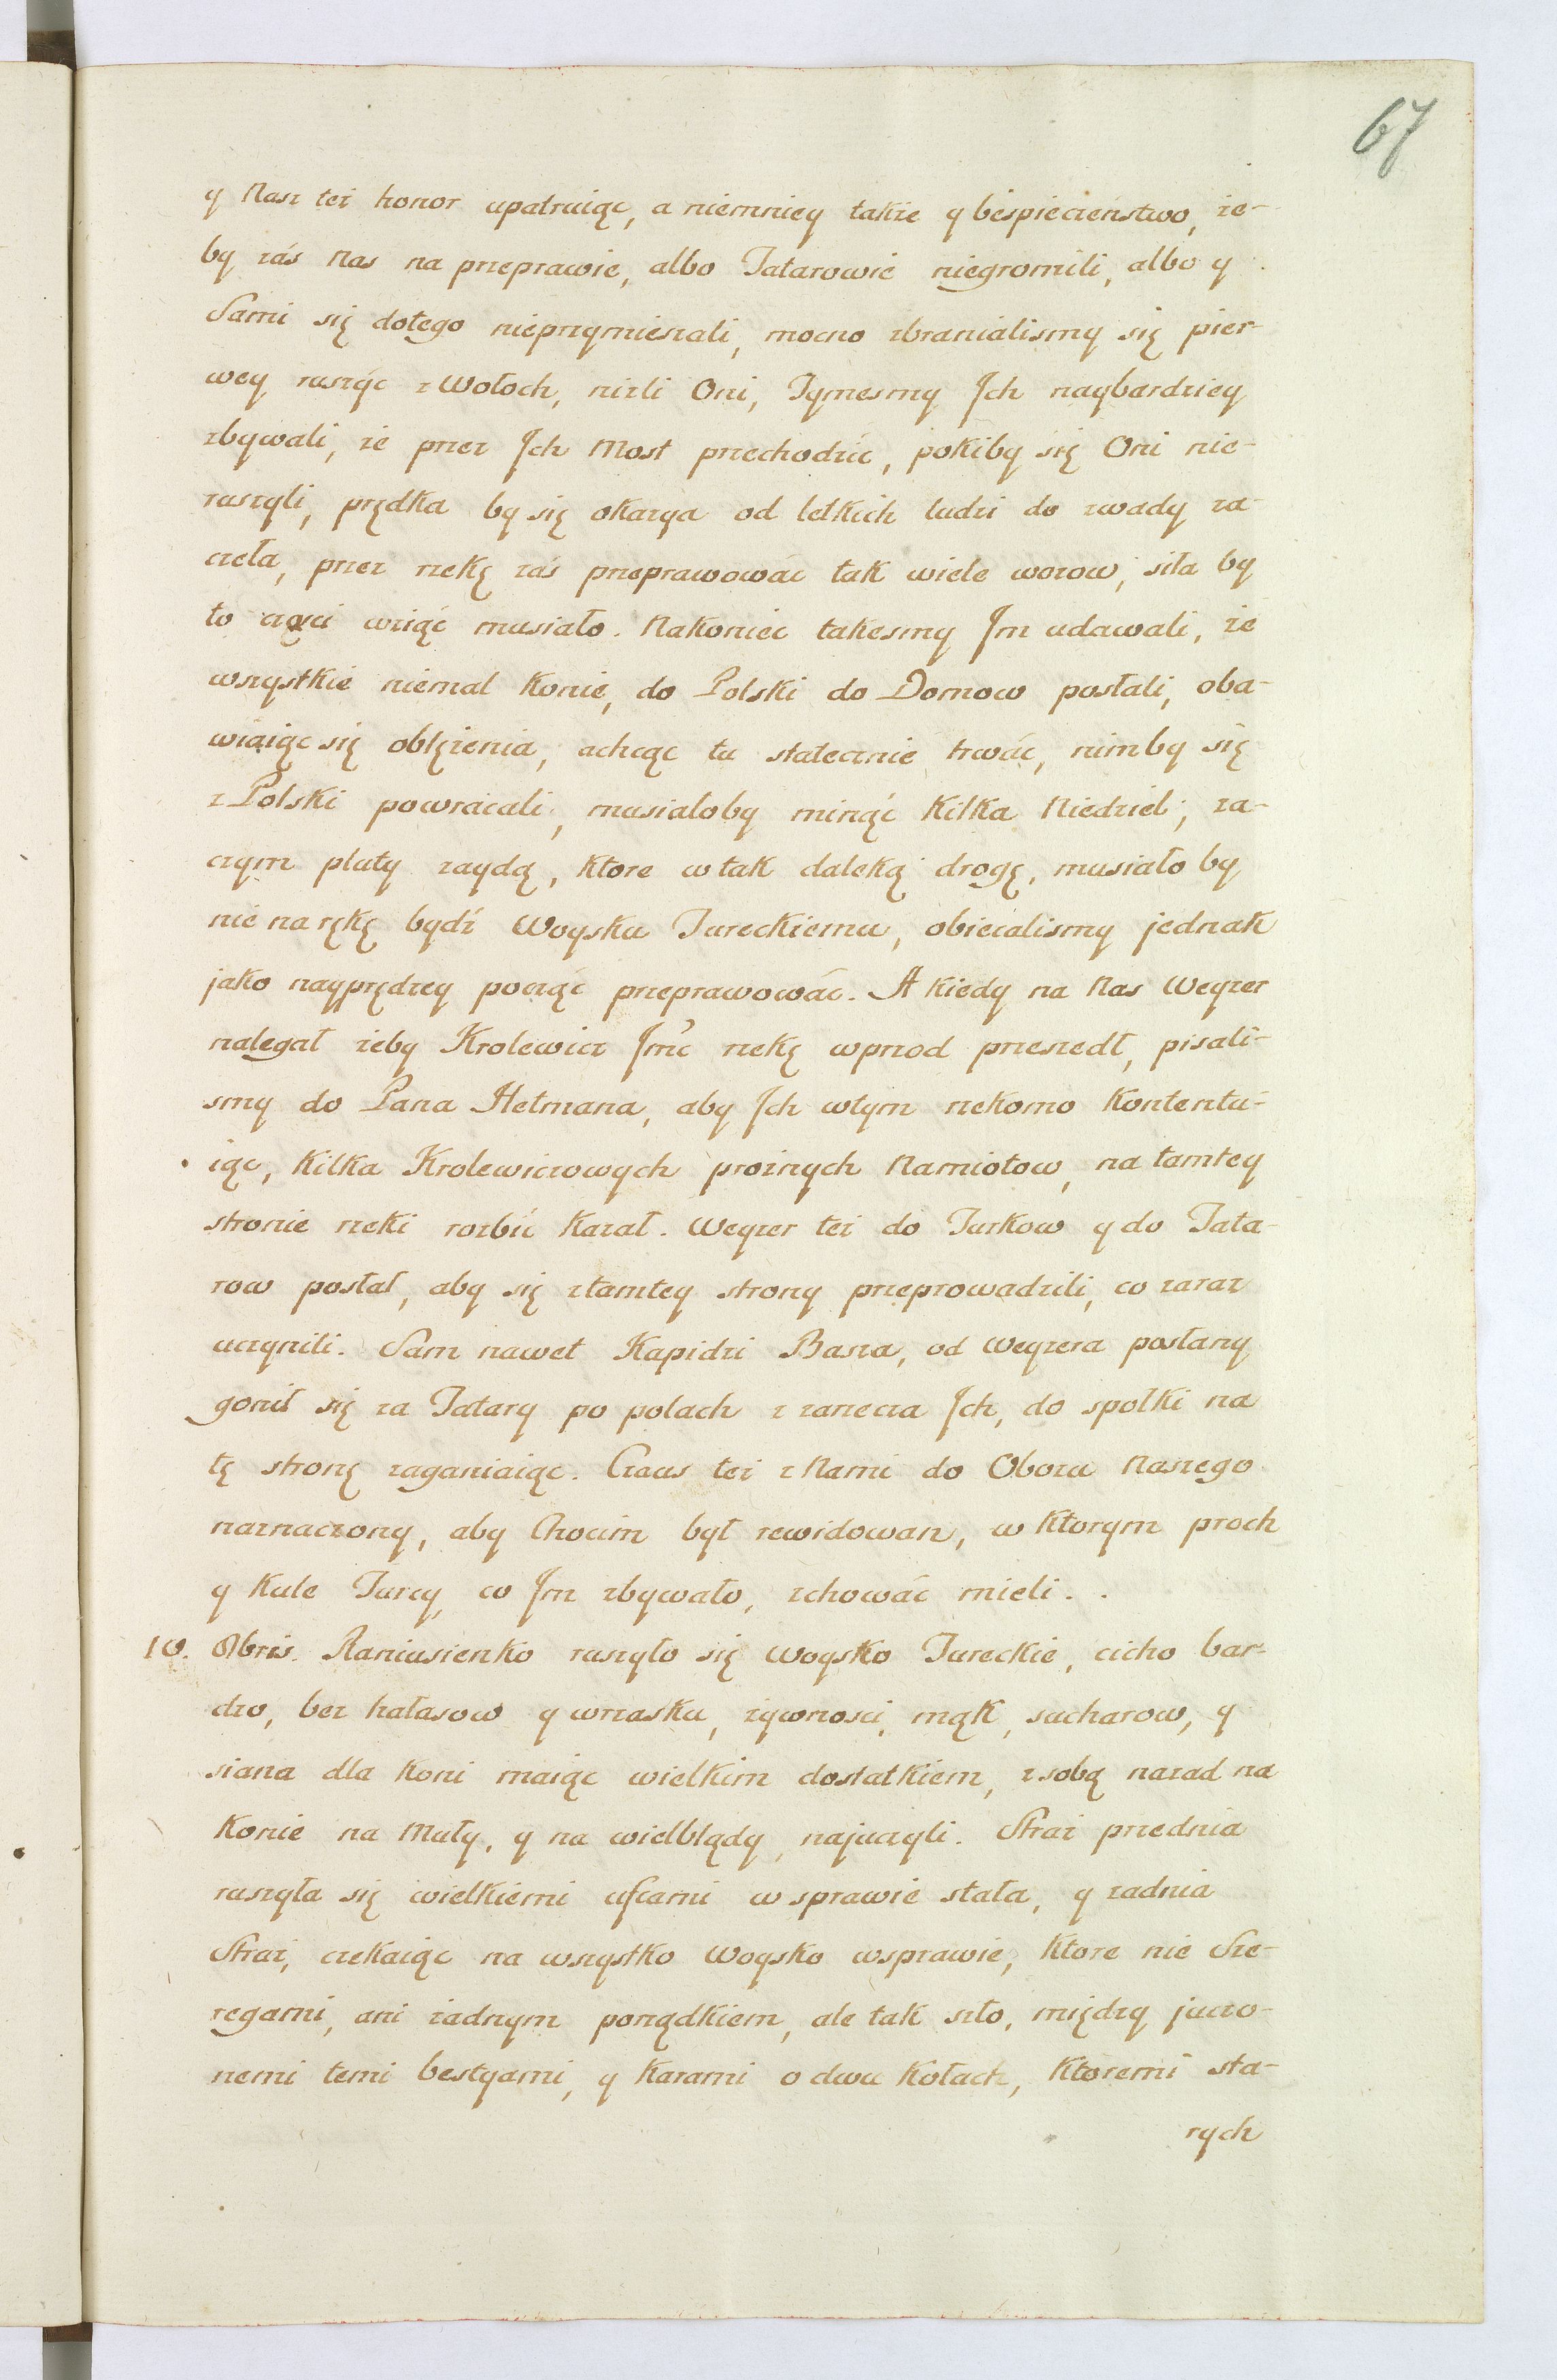 67
y Nasz też honor upatruiąc, a niemniey także y bespieczeństwo, że-
by zaś Nas na przeprawie, albo Tatarowie niegromili, albo y
Sami się dotego nieprzymieszali, mocno zbranialismy się pier-
wey ruszyć z Wołoch, niżli Oni, Tymesmy Ich naybardziey
zbywali, że przez Ich Most przechodzić, pokiby się Oni nie-
ruszyli, prędka by się okazya od letkich ludzi do zwady za-
czeła, przez rzekę zaś przeprawować tak wiele wozow, siła by
to części wziąć musiało. Nakoniec takesmy Im udawali, że
wszystkie niemal Konie, do Polski do Domow posłali, oba-
wiaiąc się oblężenia, achcąc tu statecznie trwać, nimby się
z Polski powracali, musialoby minąć Kilka Niedziel, za-
czym pluty zaydą, Ktore w tak daleką drogę, musiało by
nie na rękę bydź Woysku Tureckiemu, obiecalismy jednak
jako nayprędzey począć przeprawować. A Kiedy na Nas Wezyer
nalegał żeby Krolewicz Jmć rzekę wprzod przeszedł, pisali-
smy do Pana Hetmana, aby Ich wtym rzekomo Kontentu-
iąc, Kilka Krolewiczowych prożnych Namiotow, na tamtey
stronie rzeki rozbić Kazał. Wezyer też do Turkow y do Tata-
row posłał, aby się ztamtey strony przeprowadzili, co zaraz
uczynili. Sam nawet Kapidzi Basza, od Wezyera posłany
gonił się za Tatary po polach z zarzecza Ich, do spolki na
tę stronę zaganiaiąc. Czaus też z Nami do Obozu Naszego
naznaczony, aby Chocim był rewidowan, w Ktorym proch
y Kule Turcy, co Im zbywało, zchować mieli.
10. 8bris. Raniusienko ruszyło się Woysko Tureckie, cicho bar-
dzo, bez hałasow y wrzasku, żywnosci, mąk, sucharow, y
siana dla Koni maiąc wielkim dostatkiem, z sobą nazad na
Konie na Muły, y na wielblądy, najuczyli. Straż przednia
ruszyła się wielkiemi ufcami w sprawie stała, y zadnia
Straż, czekaiąc na wszystko Woysko wsprawie, Ktore nie Sze-
regami, ani żadnym porządkiem, ale tak szło, między juczo-
nemi temi bestyami, y Karami o dwu Kołach, Ktoremi sta-
rych